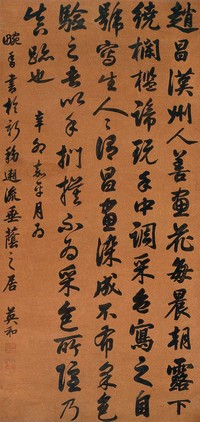 趙昌漢州人善畫花每晨朝露下
繞欄檻諦玩手中調采色寫之自
號寫生人人謂昌畫染成不布采色
驗之者以手捫摸不為采色所隱乃
真跡也 辛卯嘉平月為
書於流垂蔭之居 英和